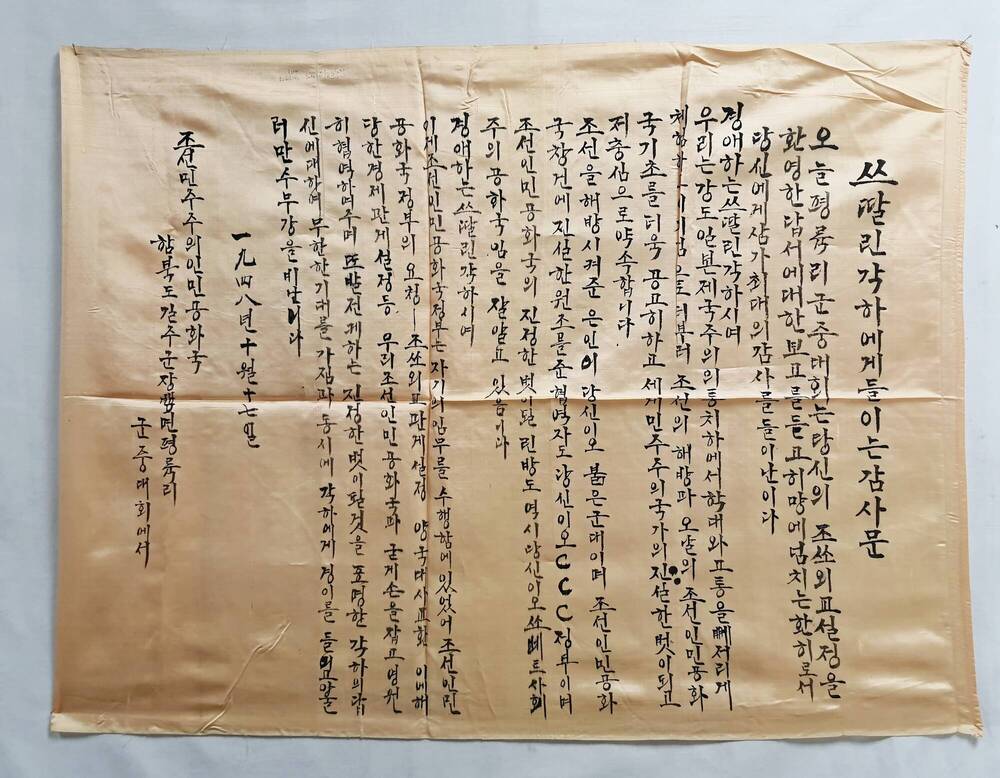 쓰딸린각하에게들이는감사문
오늘평륙리군중대회는당신의 조쏘외교설정을
환영한답서에대한보고를듣고히망에넘치는환히로서
당신에게삼가최대의감사를들이난이다
경애하는쓰딸린각하시여
우리는강도일본제국주의의통치하에서학대와고통을뼈저리게
체험하 조선의 해방과 오날의 조선인민공화
국기초를더욱 공고히하고 세게민주주의국가의진실한벗이되고
저충심으로약속합니다
조선을해방시켜준 은인이 당신이오 붉은군대이며 조선인민공화
국창건에 진실한원조를준협력자도당신이오CCC정부이며
조선인민공화국의 진정한벗이될 역시당신이오쏘베트사회
주의공화국임을 잘알고 있음니다
경애하는쓰딸린각하시여
이제조선인민공화국정부는 자기의임무를 수행함에있었어 조선인민
공화국정부의 요청 조쏘외교관게설정 양국대사교환
당한경제관게설정등 우리조선인민공화국과 굳게손을잡고영원
히협력하여주며 또발전케하는 진정한벗이된것을 표명한 각하의답
신에대하여 무한한기대를 가짐과 동시에 각하에게 경이를 들
러만수무강을비난니다
一九四八년十월十七일
조선민주주의인민공화국
함북도길주군장백면평륙리
군중대회에서